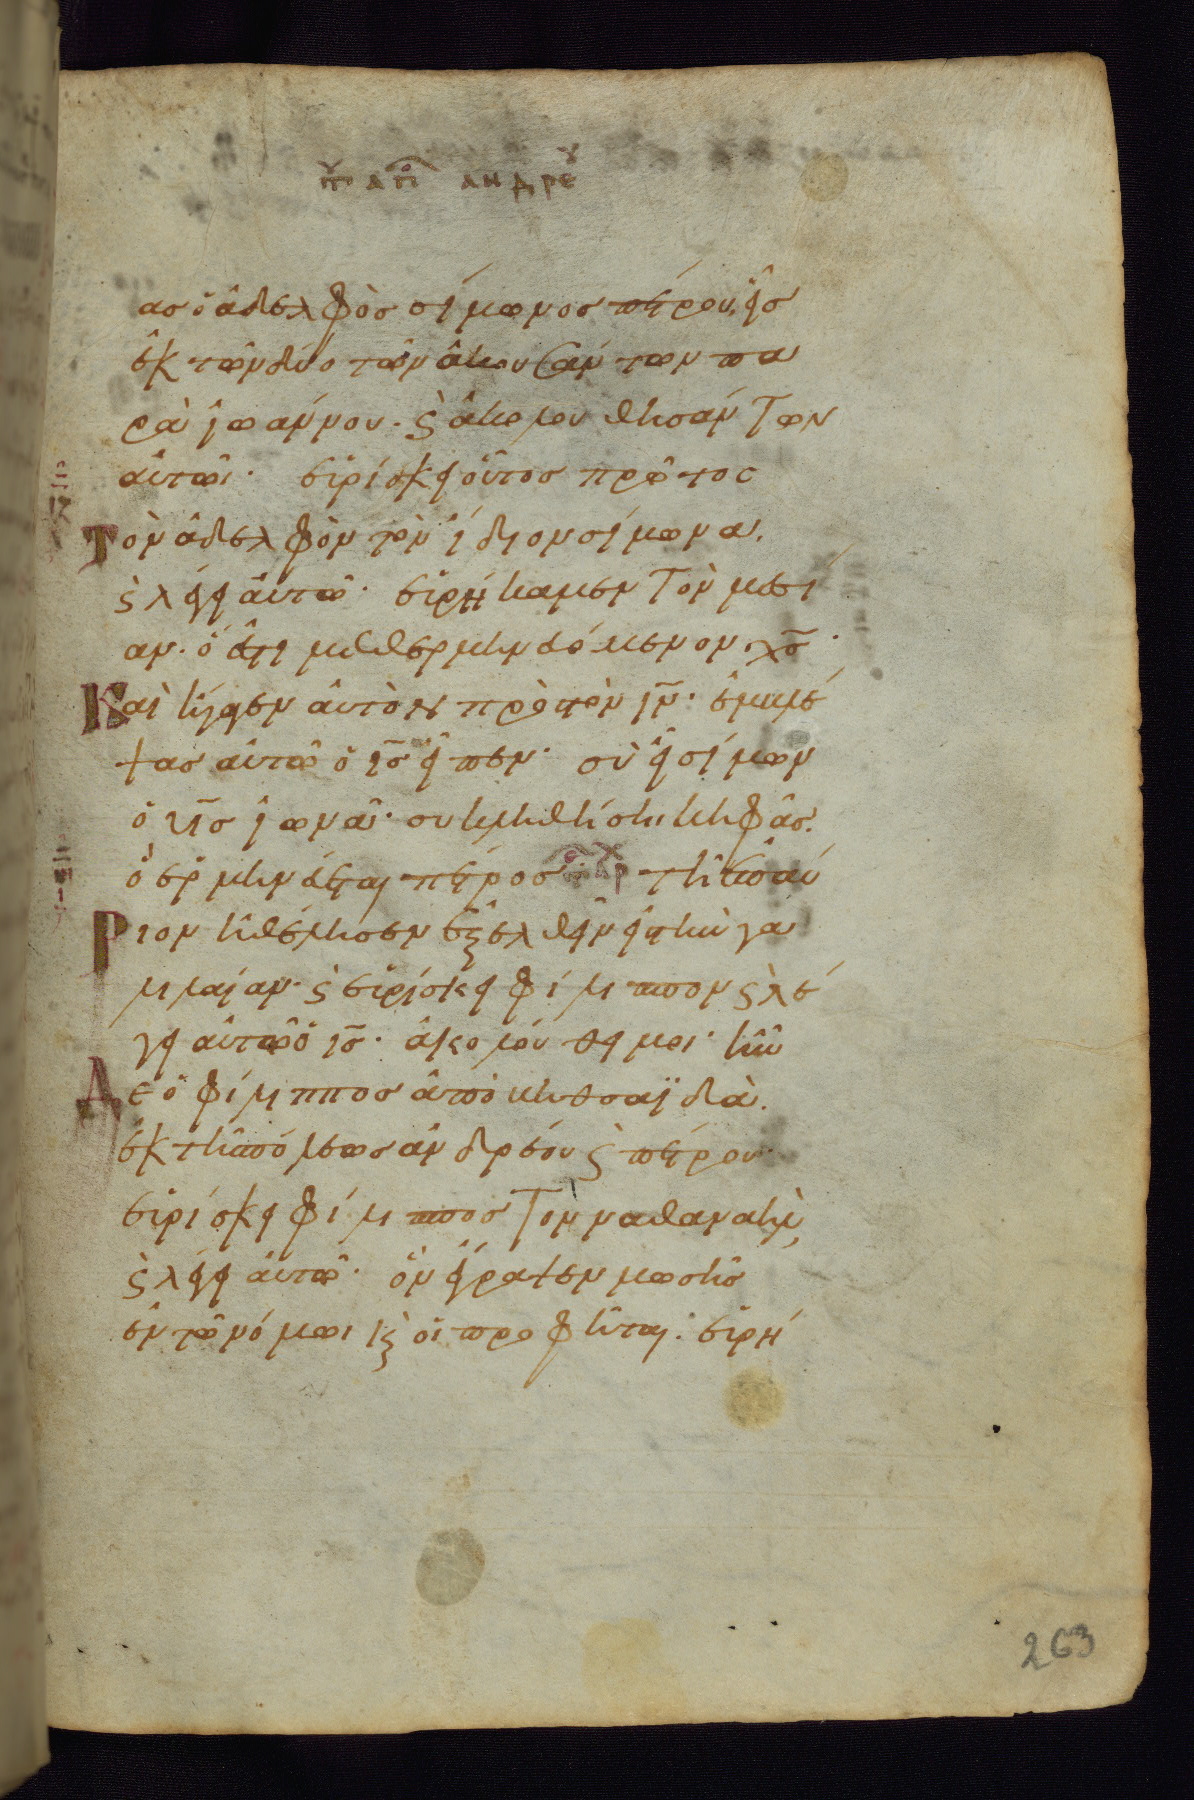 τοῦ ἀποʹ ανδρεου
ας ὁ ἀδελφὸς σίμωνος πέτρου. εἷς
ἐκ τῶν δύο τῶν ἀκουσάντων πα
ρὰ ἰωάννου. ϛ ἀκολουθησάντων
αὐτῶι· εὑρίσκει οὗτος πρῶτος
Τὸν ἀδελφὸν τὸν ἴδιον σίμωνα.
ϛ λέγει αὐτῶ· εὑρήκαμεν τὸν μεσί
αν. ὅ ἐστι μεθερμηνευόμενον χσ̄·
Καὶ ἤγαγεν αὐτὸν πρὸς τὸν ιν̄· ἐμβλέ
ψας αὐτῶ ὁ ισ̄ εἶπεν· σὺ εἶ σίμων
ὁ υισ̄ ἰωνᾶ· συ κληθήση κηφᾶς.
ὃ ἑρμηνεύεται πέτρος τῆ ἐπαύ
Ριον ἠθέλησεν ἐξελθεῖν εἰς τὴν γα
λιλαίαν· ϛ εὑρίσκει φίλιππον ϛ λέ
γει αὐτῶ ὁ ισ̄· ἀκολούθει μοι· ἦν
Δε ὁ φίλιππος ἀπὸ βηθσαϊδὰ.
ἐκ τῆς πόλεως ἀνδρέου ϛ πέτρου
εὑρίσκει φίλιππος τὸν ναθαναὴλ
ϛ λέγει αὐτῶ· ὃν ἔγραψεν μωσῆς
ἐν τῶ νόμωι κϛ οἱ προφῆται· εὑρή
263